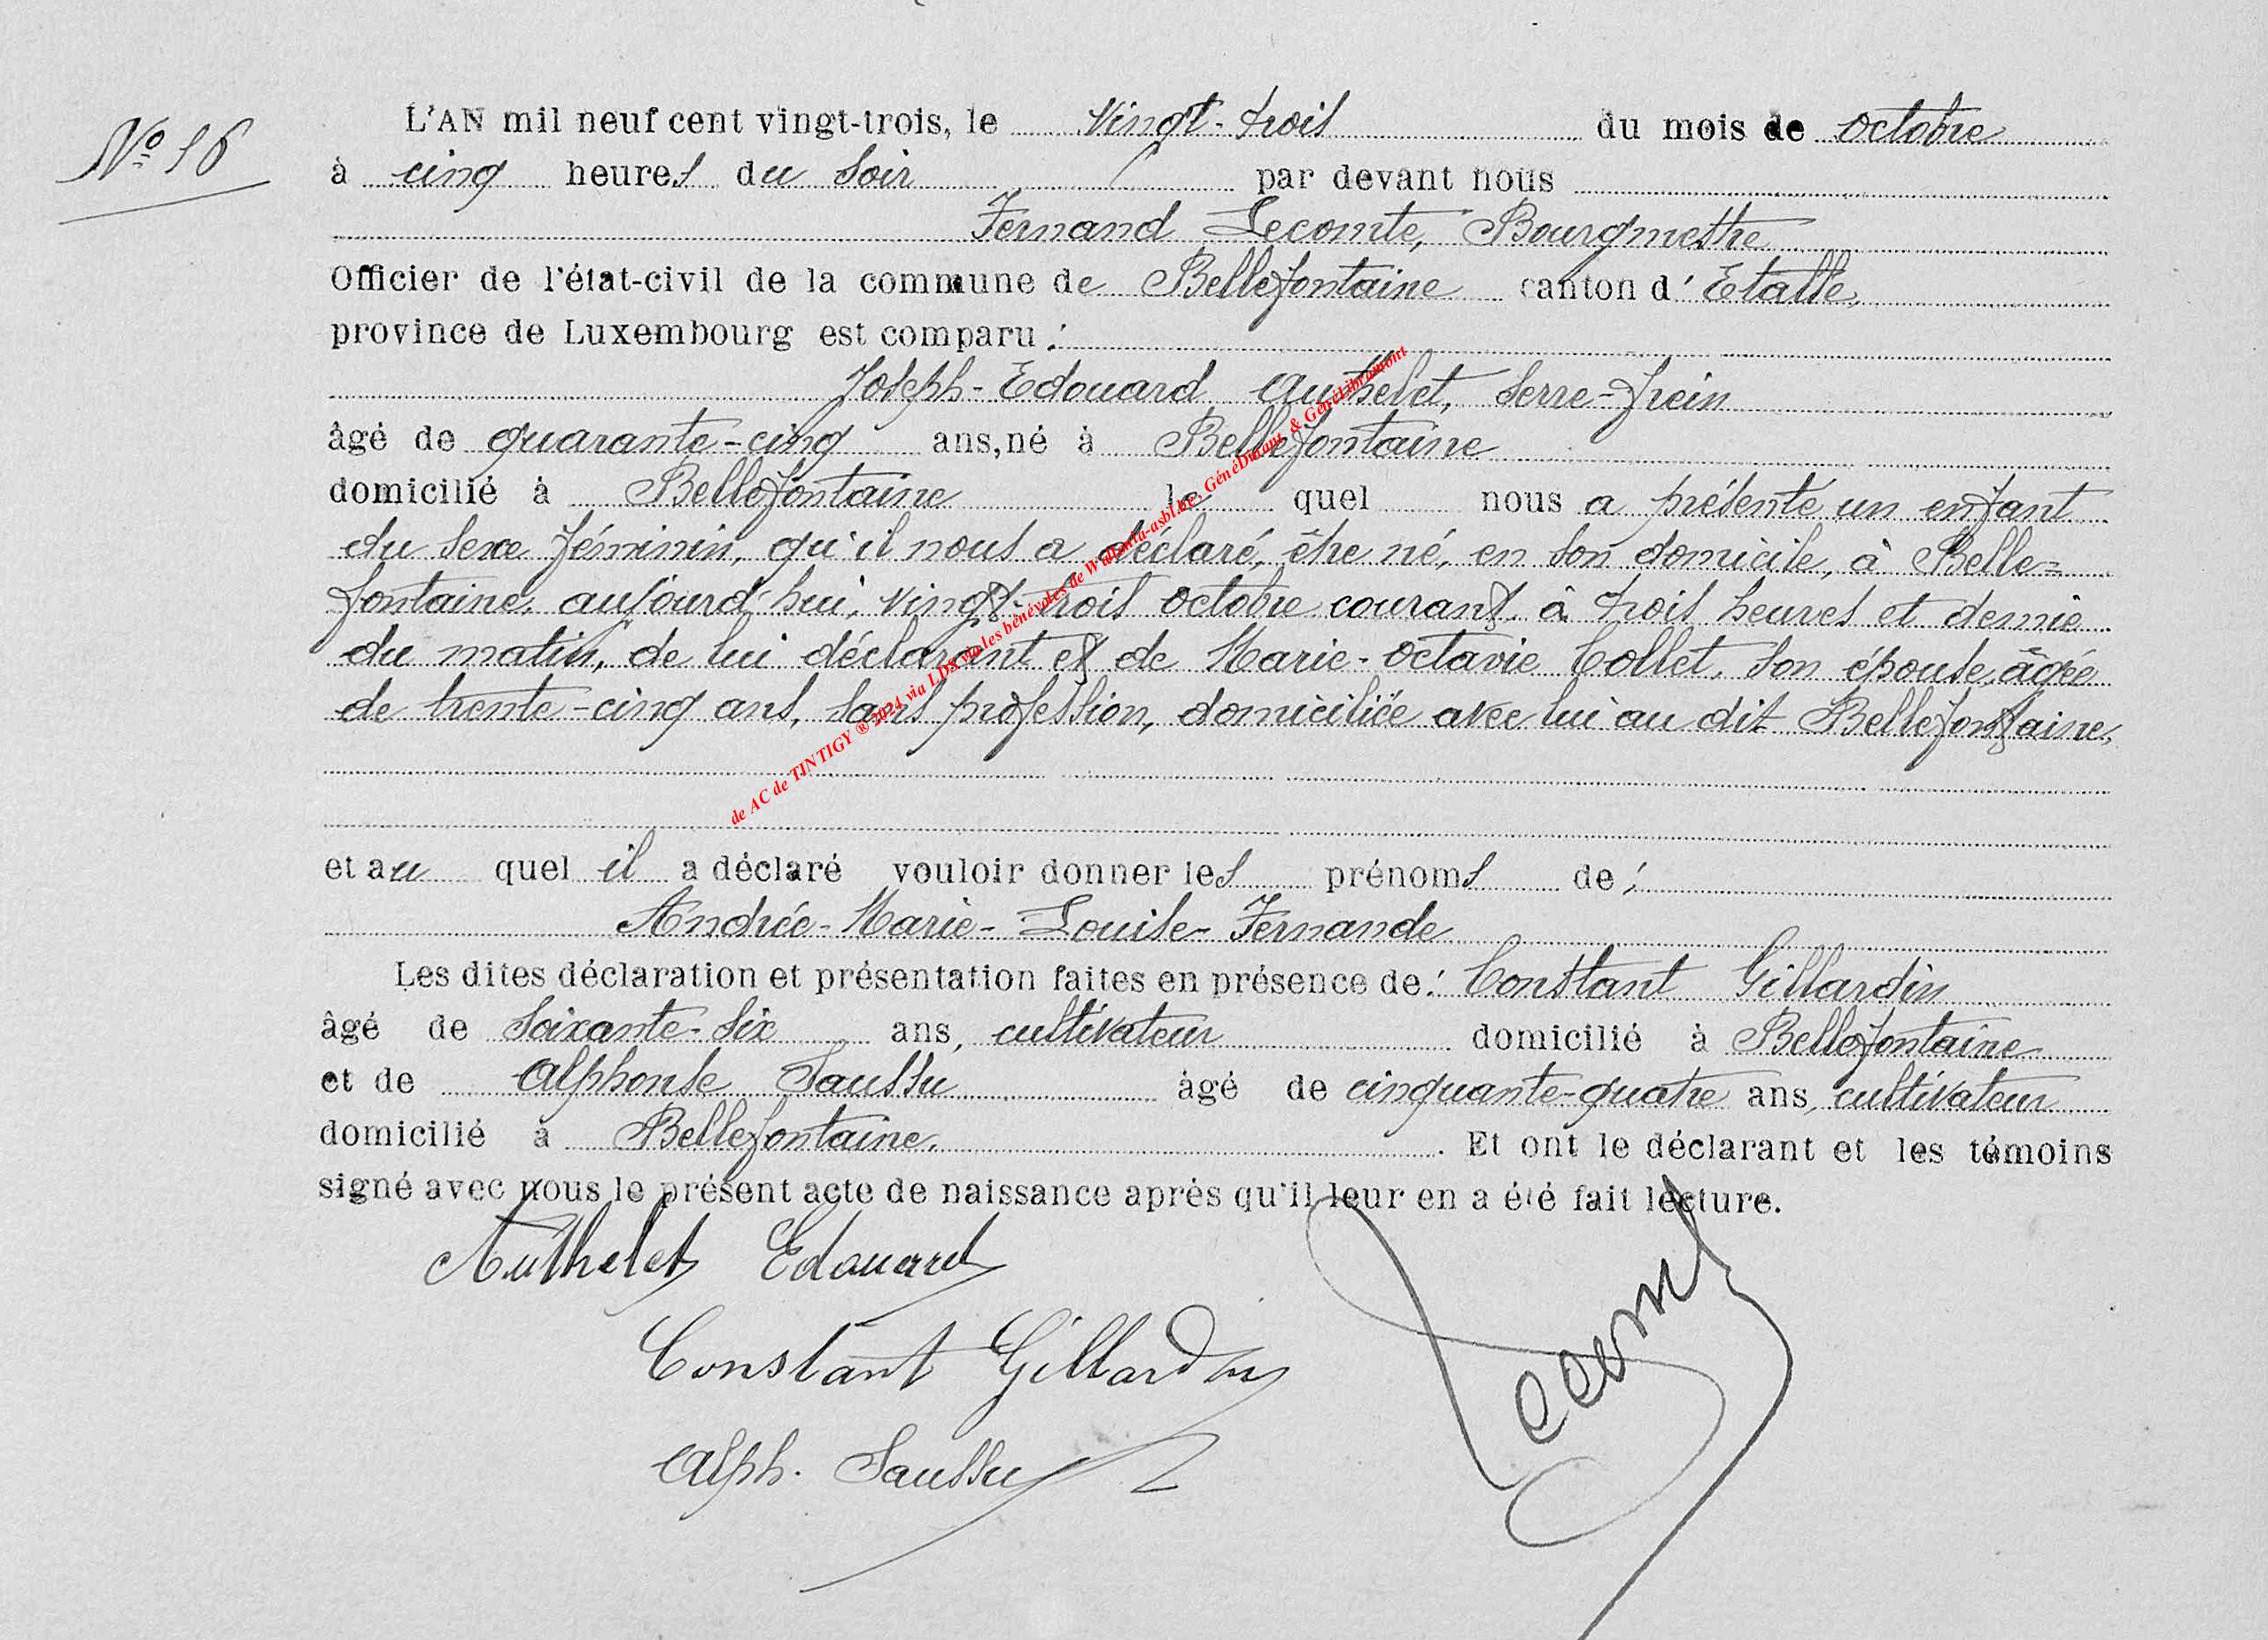 Nº 16
L'AN mil neuf cent vingt-trois, le vingt-trois du mois de octobre
à cinq heures du soir par devant nous
Fernand Lecomte, Bourgmestre
Officier de l'état-civil de la commune de Bellefontaine canton d'Etalle,
province de Luxembourg est comparu :
Joseph-Edouard Authelet, serre-frein
âgé de quarante-cinq ans, né à Bellefontaine
domicilié à Bellefontaine le quel nous a présenté un enfant
du sexe féminin, qu'il nous a déclaré, être né, en son domicile, à Belle=
fontaine, aujourd'hui, vingt-trois octobre courant, à trois heures et demie
du matin, de lui déclarant et de Marie-Octavie Collet, son épouse, âgée
de trente-cinq ans, sans profession, domiciliée avec lui au dit Bellefontaine,
et au quel il a déclaré vouloir donner les prénoms de :
Andrée-Marie-Louise-Fernande
Les dites déclaration et présentation faites en présence de : Constant Gillardin
âgé de soixante-six ans, cultivateur domicilié à Bellefontaine
et de Alphonse Saussu âgé de cinquante-quatre ans, cultivateur
domicilié à Bellefontaine. Et ont le déclarant et les témoins
signé avec nous le présent acte de naissance après qu'il leur en a été fait lecture.
Authelet Edouard
Constant Gillardin
Alph. Saussu
Lecomte
de AC de TINTIGY ® 2024 via LDS via les bénévoles de Wallonia-asbl.be, GénéDinant, & GénéLibramont